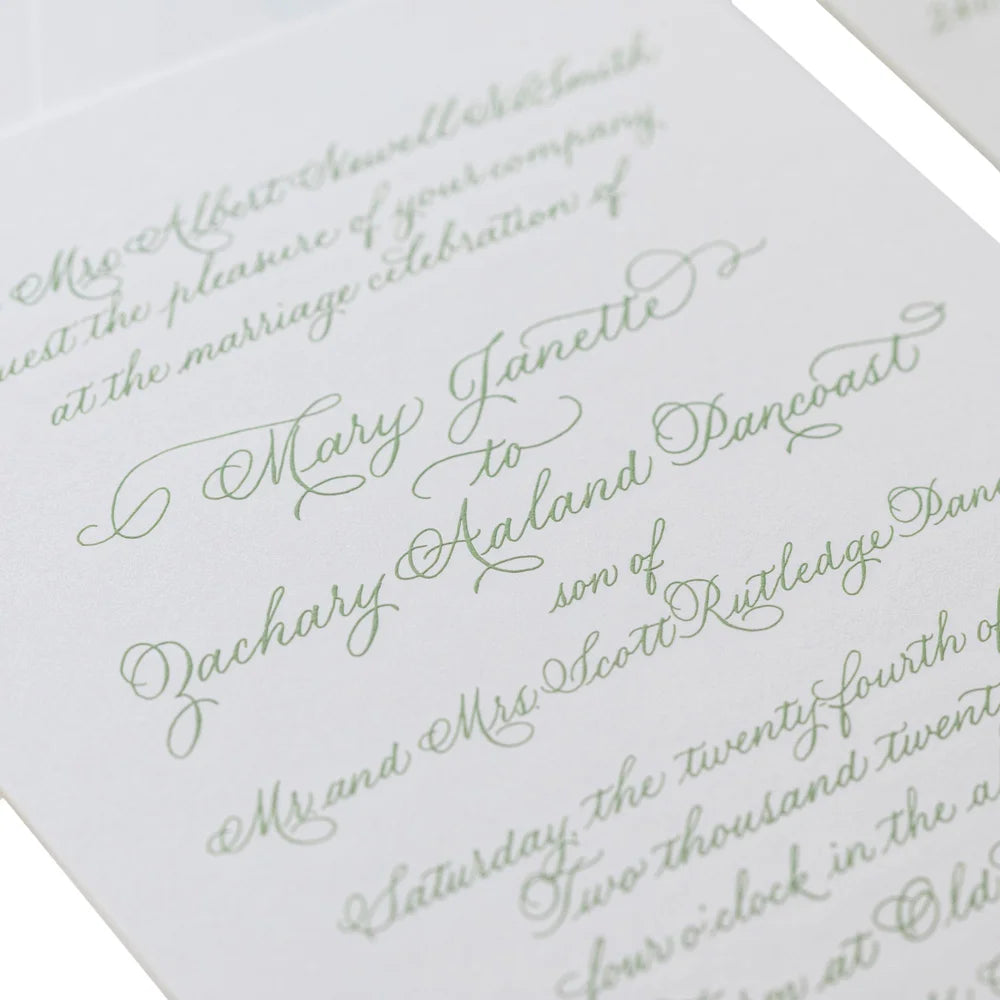 Mrs. Albert Newell NeSmith
uest the pleasure of your company
at the marriage celebration of
Mary Janette
to
Zachary Aaland Pancoast
son of
Mr. and Mrs. Scott Rutledge Panc
Saturday, the twenty-fourth of
Two thousand twent
four o'clock in the a
at Old